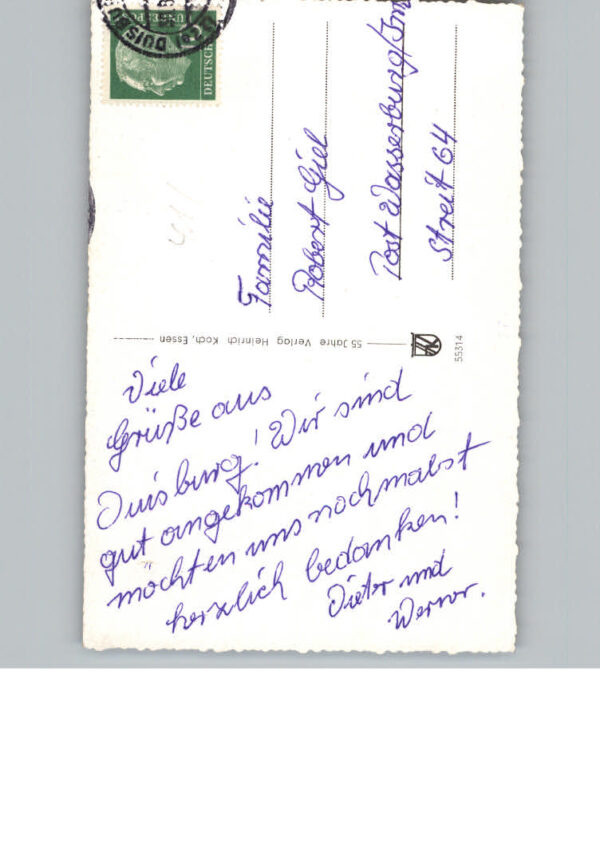 Viele
Grüße aus
Duisburg! Wir sind
gut angekommen und
möchten uns nochmalst
herzlich bedanken!
Dieter und
Werner.
55 Jahre Verlag Heinrich Koch, Essen
55314
Familie
Robert Giel
Post Wasserburg/Inn
Streit 64
DEUTSCHE
DUISBU